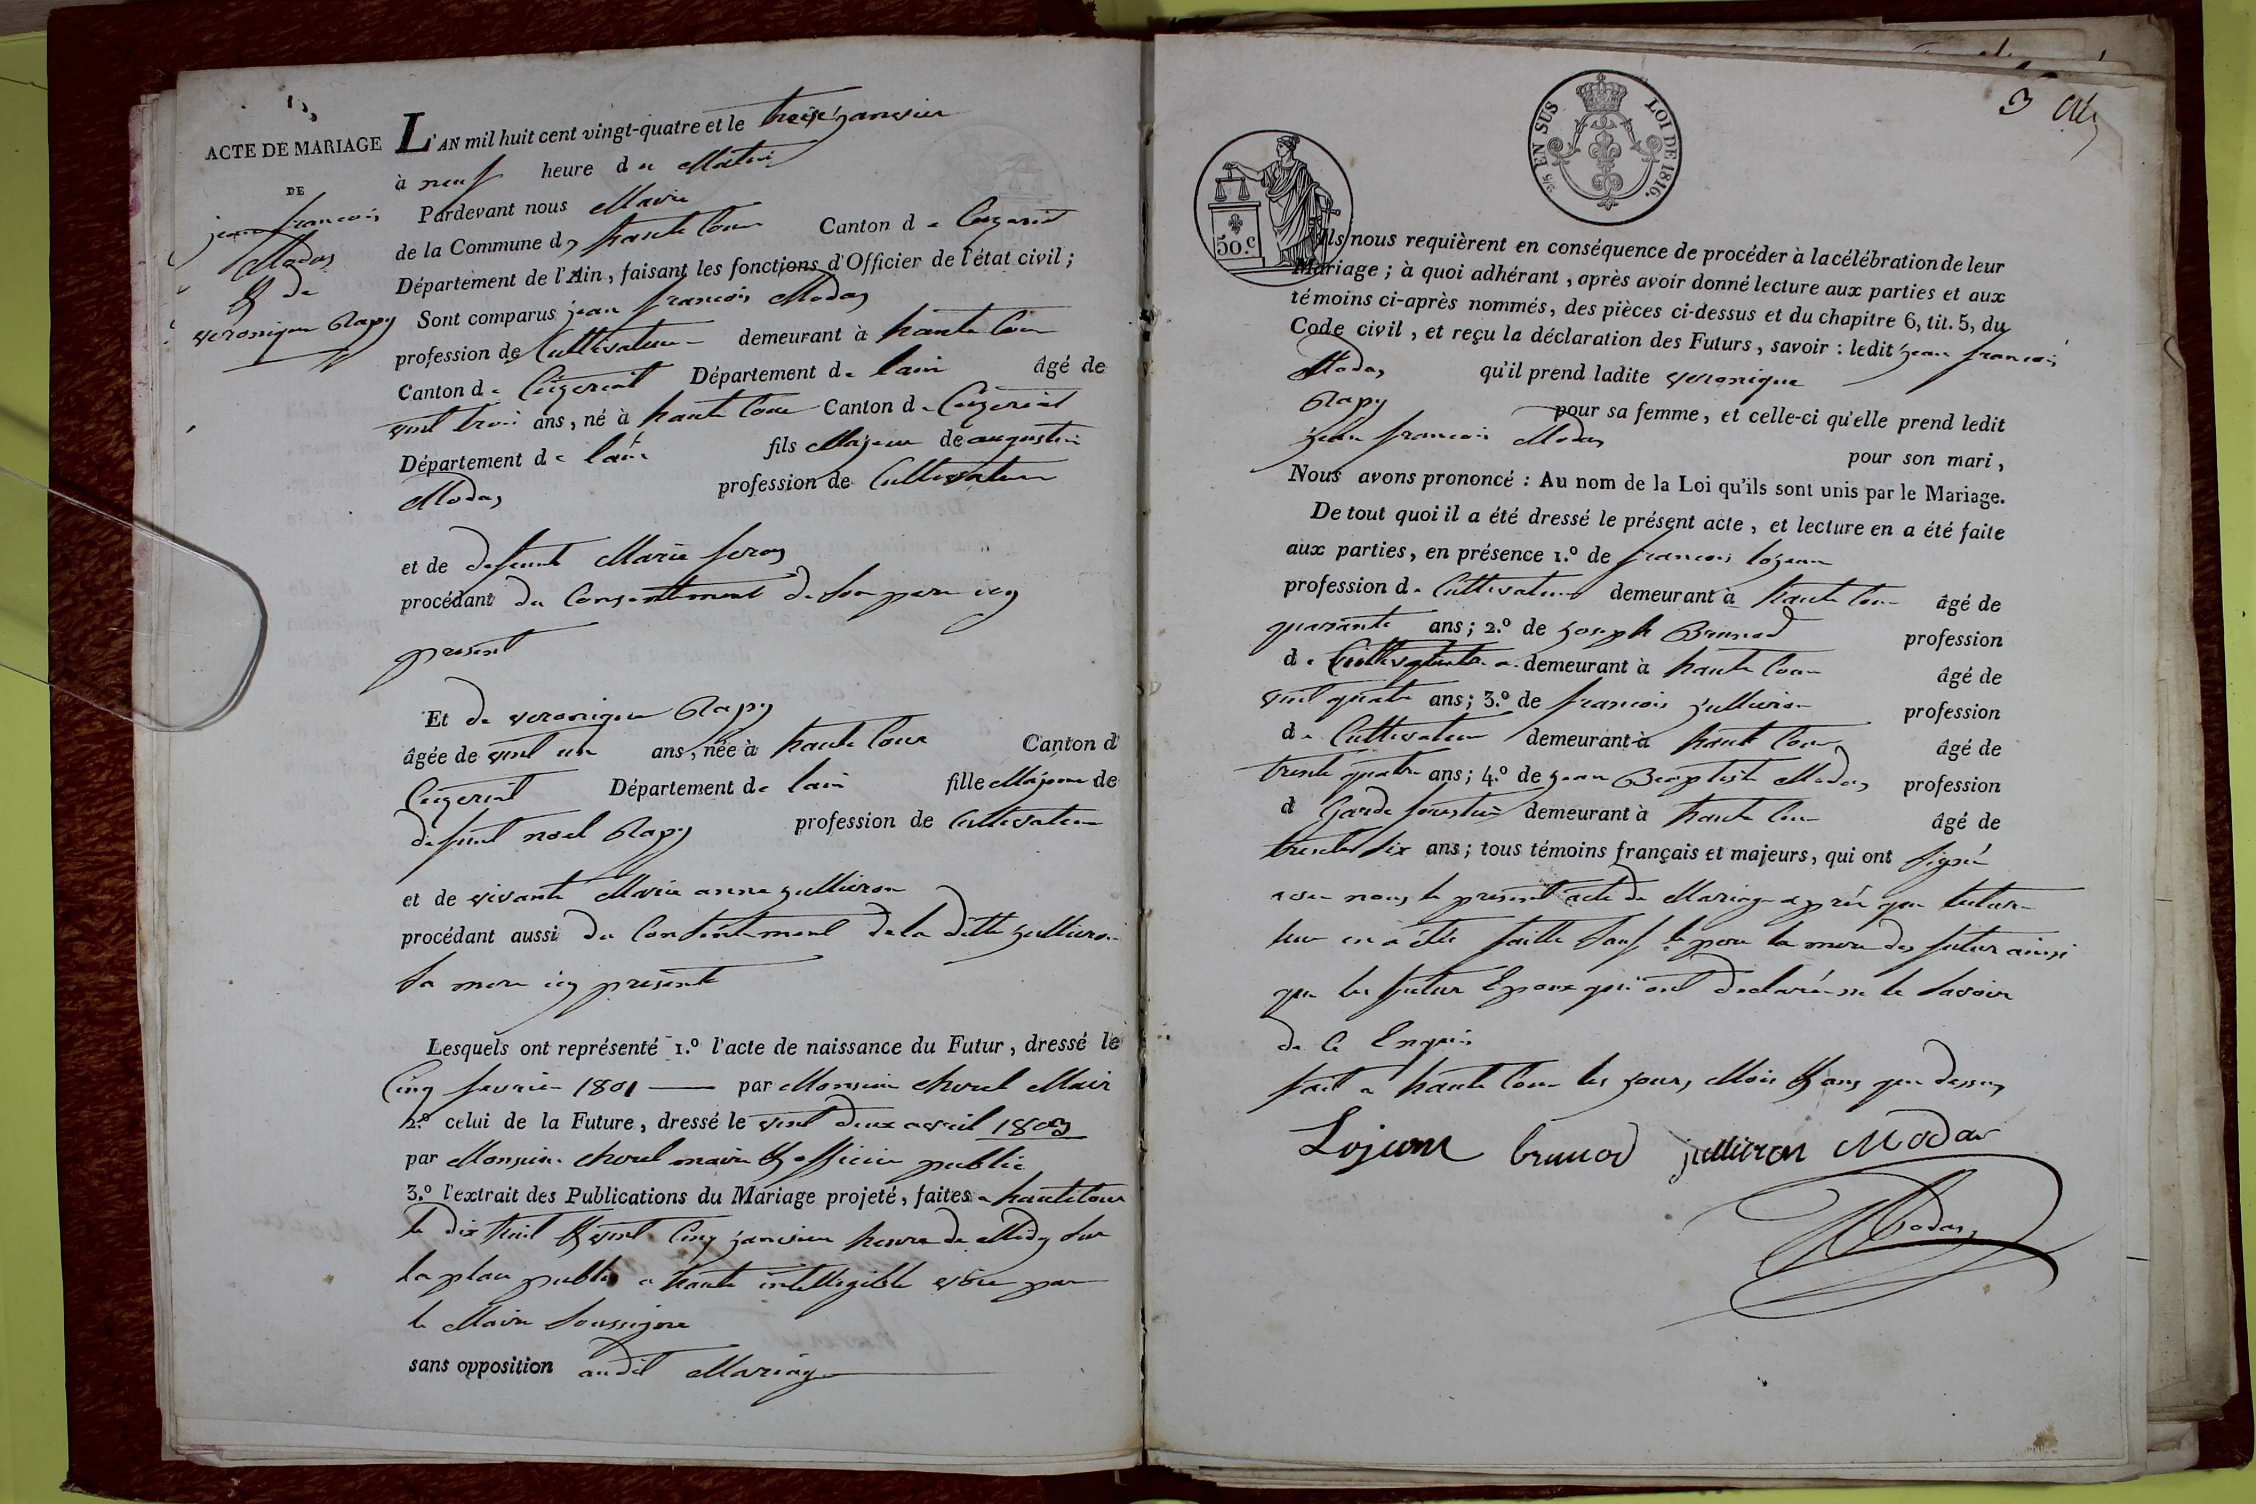 ACTE DE MARIAGE
DE
jean francois
Modas
& de
veronique Rapy
L'AN mil huit cent vingt-quatre et le janvier
à neuf heure du Matin
Pardevant nous Maire
de la Commune d haute Cour Canton de Ceyzeriat
Département de l'Ain, faisant les fonctions d'Officier de l'état civil ;
Sont comparus jean francois Modas
profession de Cultivateur demeurant à haute Cour
Canton de Ceyzeriat Département de lain âgé de
vint trois ans, né à haute Cour Canton de Ceyzeriat
Département de lain fils Majeur de augustin
Modas profession de Cultivateur
et de defeunte Marie feray
procédant du Consentement de son pere icy
present
Et de veronique Rapy
âgée de vint un ans, née à haute Cour Canton d
Ceyzeriat Département de lain fille Majeure de
defunt noel Rapy profession de Cultivateur
et de vivante Marie anne jullieron
procédant aussi du Consentement de la ditte jullieron
sa mere icy presente
Lesquels ont représenté 1.º l'acte de naissance du Futur, dressé le
Cinq fevrier 1801 par Monsieur chorel Mair
2.º celui de la Future, dressé le vint deux avril 1803
par Monsieur chorel maire & officier public
3.º l'extrait des Publications du Mariage projeté, faites a hautecour
le dix huit & vint Cinq janvier heure de Midy sur
la place public a haute intelligible voix par
le Maire soussigné
sans opposition audit Mariage
3
EN SUS
LOI DE 1816.
50.c
Ils nous requièrent en conséquence de procéder à la célébration de leur
Mariage ; à quoi adhérant, après avoir donné lecture aux parties et aux
témoins ci-après nommés, des pièces ci-dessus et du chapitre 6, tit. 5, du
Code civil, et reçu la déclaration des Futurs, savoir : ledit jean francois
Modas qu'il prend ladite veronique
Rapy pour sa femme, et celle-ci qu'elle prend ledit
jean francois Modas pour son mari,
Nous avons prononcé : Au nom de la Loi qu'ils sont unis par le Mariage.
De tout quoi il a été dressé le présent acte, et lecture en a été faite
aux parties, en présence 1.º de francois lojean
profession de Cultivateur demeurant à haute Cour âgé de
quarante ans; 2.º de joseph Brunod profession
de Cultivateur demeurant à haute Cour âgé de
vint quatre ans; 3.º de francois jullieron profession
de Cultivateur demeurant à haute Cour âgé de
trente quatre ans; 4.º de jean Baptiste Modas profession
d Garde forestier demeurant à haute Cour âgé de
trente six ans; tous témoins français et majeurs, qui ont signé
avec nous le present acte de Mariage aprés que lecture
leur en a étté faitte sauf le pere la mere des futur ainsi
que les futur Epoux qui ont declaré ne le savoir
de Ce Enquis
fait a haute Cour les jours, Mois & ans que dessus
Lojean brunod jullieron Modas
Modas